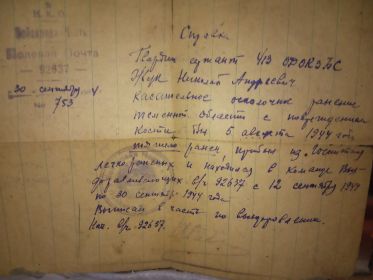 Н.К.О.
Полевая Почта
92637
30 сентября
№ 753
Справка
Гвардии сержант
Жук Николай Андреевич
касательное осколочное ранение
теменной области с повреждением
кости. 5 августа 1944 года
ранен, прибыл из Госпиталя
легкораненых и находился в команде Выз
доравливающих в/ч 92637 с 12 сентября 1944
по 30 сентября 1944 года
Выписан в часть по выздоровлении.
Нач. в/ч 92637.